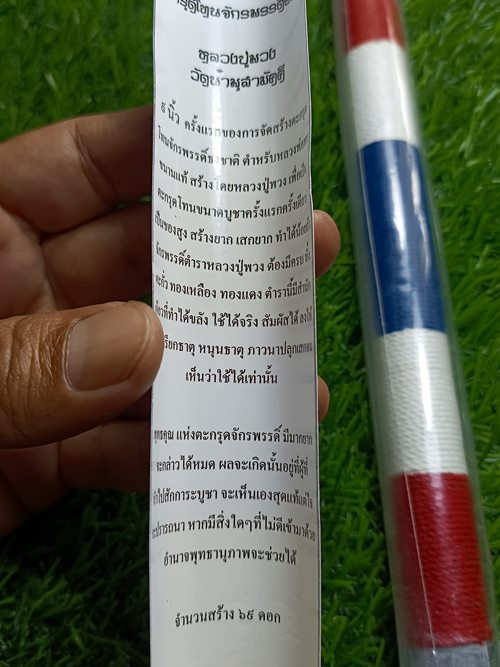 หลวงปู่พวง
วัดน้ำพุสามัคคี
๕ นิ้ว ครั้งแรกของการจัดสร้างตะกรุด
โทนจักรพรรดิ์ธงชาติ ตำหรับหลวง
ขนานแท้ สร้างโดยหลวงปู่พวง เพื่อเป็น
ตะกรุดโทนขนาดบูชาครั้งแรกครั้งเดียว
เป็นของสูง สร้างยาก เสกยาก ทำได้น้อย
จักรพรรดิ์ตำราหลวงปู่พวง ต้องมีครบ ทั้ง
ตะกั่ว ทองเหลือง ทองแดง ตำรานี้มีสำนัก
เดียวที่ทำได้ขลัง ใช้ได้จริง สัมผัสได้ ลงไ
เรียกธาตุ หนุนธาตุ ภาวนาปลุกเสกจน
เห็นว่าใช้ได้เท่านั้น
พุทธคุณ แห่งตะกรุดจักรพรรดิ์ มีมากยาก
จะกล่าวได้หมด ผลจะเกิดนั้นอยู่ที่ผู้ที่
นำไปสักการะบูชา จะเห็นเองสุดแท้แต่ใจ
จะปรารถนา หากมีสิ่งใดๆที่ไม่ดีเข้ามาด้วย
อำนาจพุทธานุภาพจะช่วยได้
จำนวนสร้าง ๖๙ ดอก